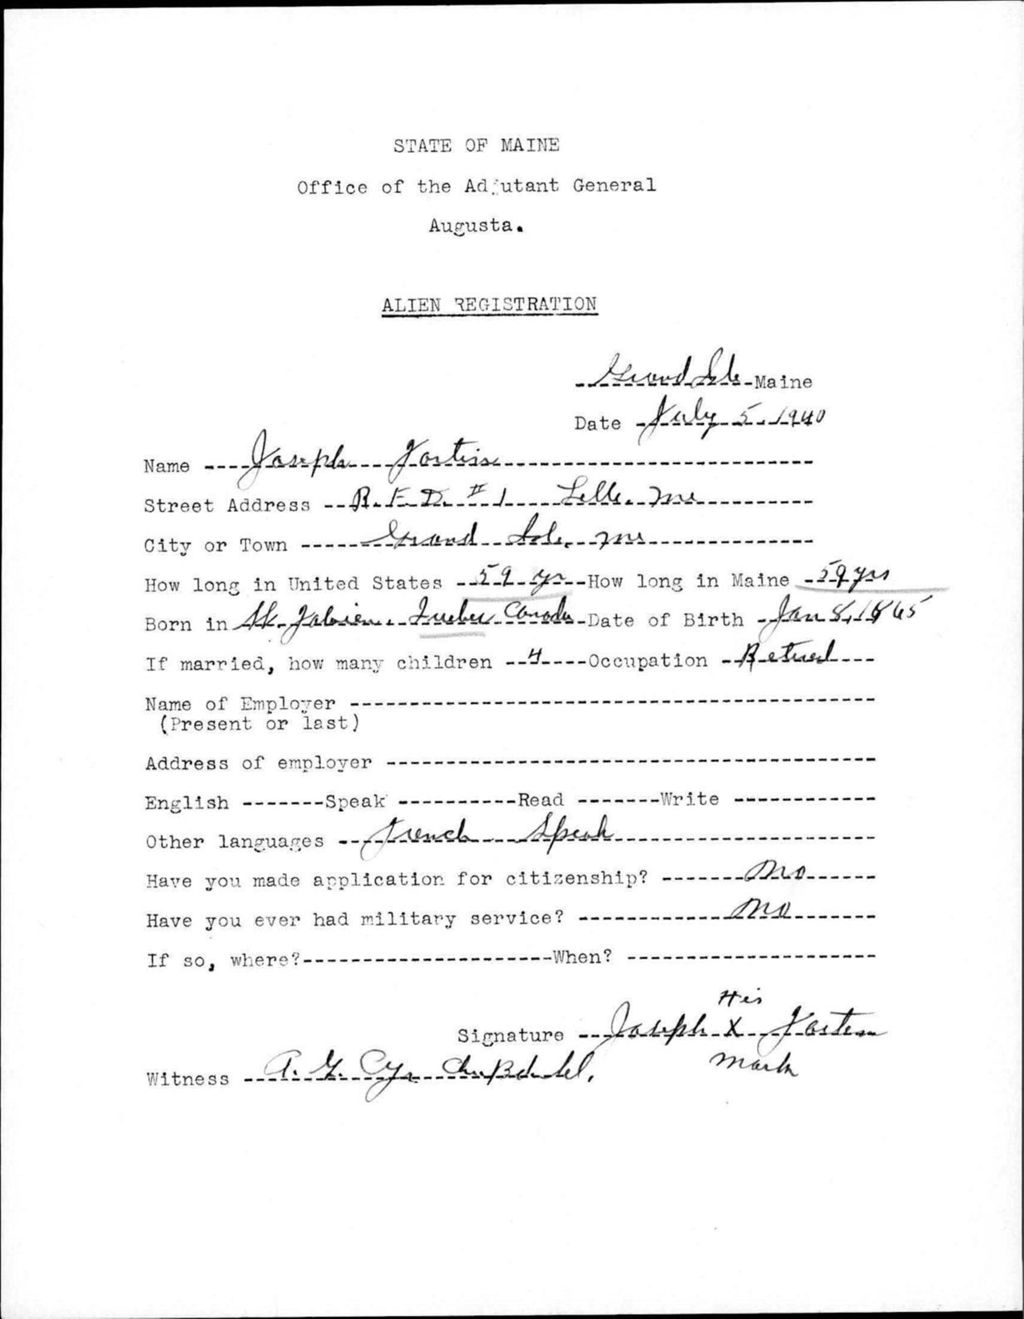 STATE OF MAINE
Office of the Adjutant General
Augusta.
ALIEN REGISTRATION
Grand Isle Maine
Date July 5, 1940
Name Joseph Fortin
Street Address R.F.D. #1 Lille, Me
City or Town Grand Isle, Me
How long in United States 59 yr How long in Maine 59 yrs
Born in St. Fabien Quebec Canada Date of Birth Jan 8, 1865
If married, how many children 4 Occupation Retired
Name of Employer
(Present or last)
Address of employer
English Speak Read Write
Other languages French Speak
Have you made application for citizenship? No
Have you ever had military service? No
If so, where? When?
His
Signature Joseph X Fortin
Mark
Witness Cyr